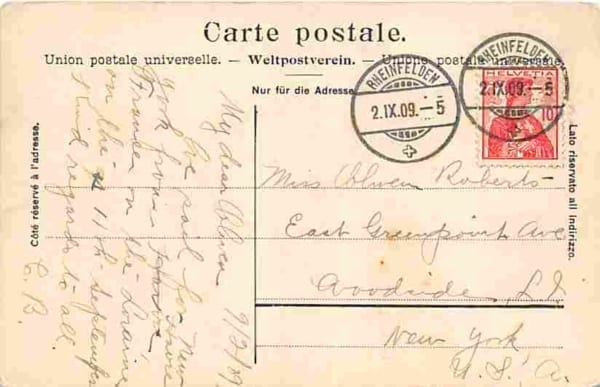 Carte postale.
Union postale universelle. — Weltpostverein. — Unione postale universale.
Nur für die Adresse
RHEINFELDEN
2.IX.09.—5
RHEINFELDEN
2.IX.09.—5
HELVETIA
10
Côté réservé à l'adresse.
Lato riservato all indirizzo.
9/2/09
My dear Olwen
We sail for New
York from Havre
France on the Loraine
on the 11th September
Kind regards to all
C. B.
Miss Olwen Roberts
East Greenpoint Ave
Woodside, L.I.
New York
U.S. A.